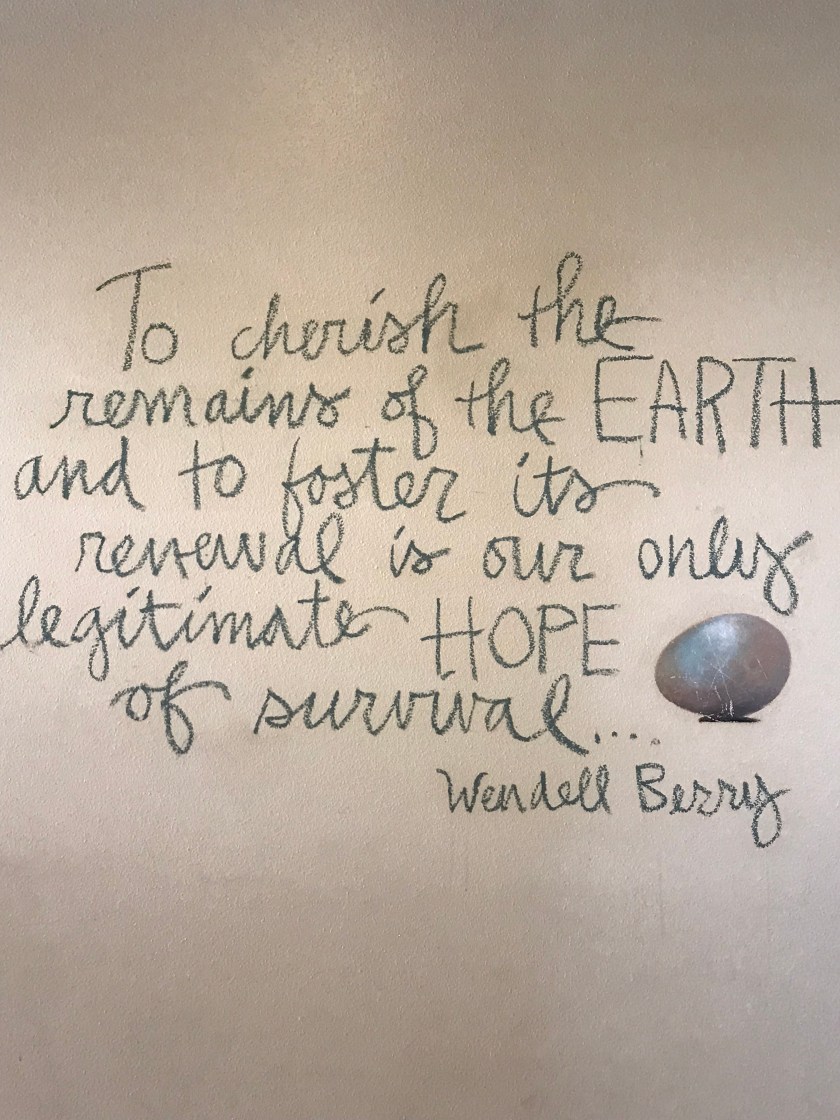 To cherish the
remains of the EARTH
and to foster its
renewal is our only
legitimate HOPE
of survival....
Wendell Berry